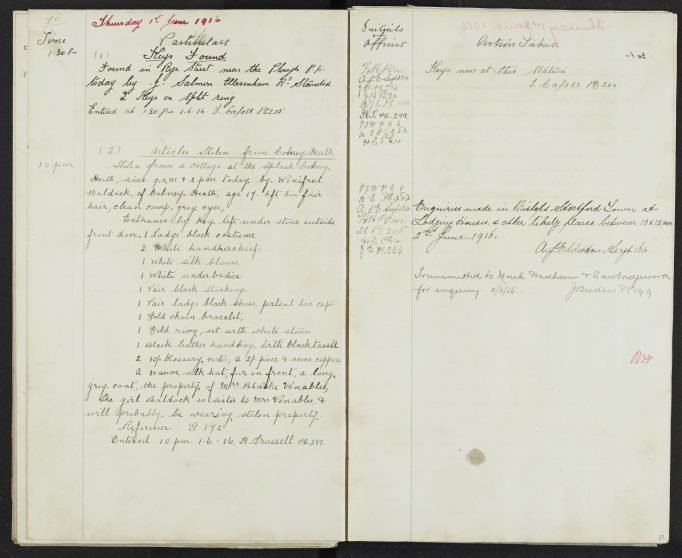 10
Thursday 1st June 1916
Time
Particulars
1.30 Pm
(1) Keys Found
Found in Rye Street near the Plough P.H.
today by J. Salmon Elsenham Rd Stansted
2 Keys on split ring
Entered at 1.30 pm 1.6.16 S. Capell PC 205
10 pm
(2) Articles Stolen from Colney Heath
Stolen from a Cottage at the Splash Colney
Heath, since 9 a.m. & 2 pm today by Winifred
Baldock, of Colney Heath, age 17. 5ft 5in fair
hair, clean comp, grey eyes,
Entrance by Key left under stone outside
front door, 1 Ladys black costume
2 White handkerchief
1 White silk blouse
1 White underbodice
1 Pair black stockings
1 Pair ladys black shoes, patent toe caps
1 Gold chain bracelet,
1 Gold ring, set with white stones
1 Black leather handbag, with black tassell
2 10/- Treasury notes, a 2/- piece & some coppers
A mauve silk hat, fur in front, a long
grey coat, the property of Mrs Blake Venables,
The girl Baldock is sister to Mrs Venables, &
will probably be wearing stolen property.
Reference G 172
Entered 10 pm 1-6-16. H. Trussell PC 299
Initials
Officers
Action Taken
Keys now at this Station
S. Capell PC 205
Enquiries made in Bishops Stortford Town at
Lodging Houses & other likely places between 10 & 12 am
2nd June 1916.
Sergt 164
Transmitted to Much Hadham & Sawbridgeworth
for enquiry 2/6/15. J Breden PC 199